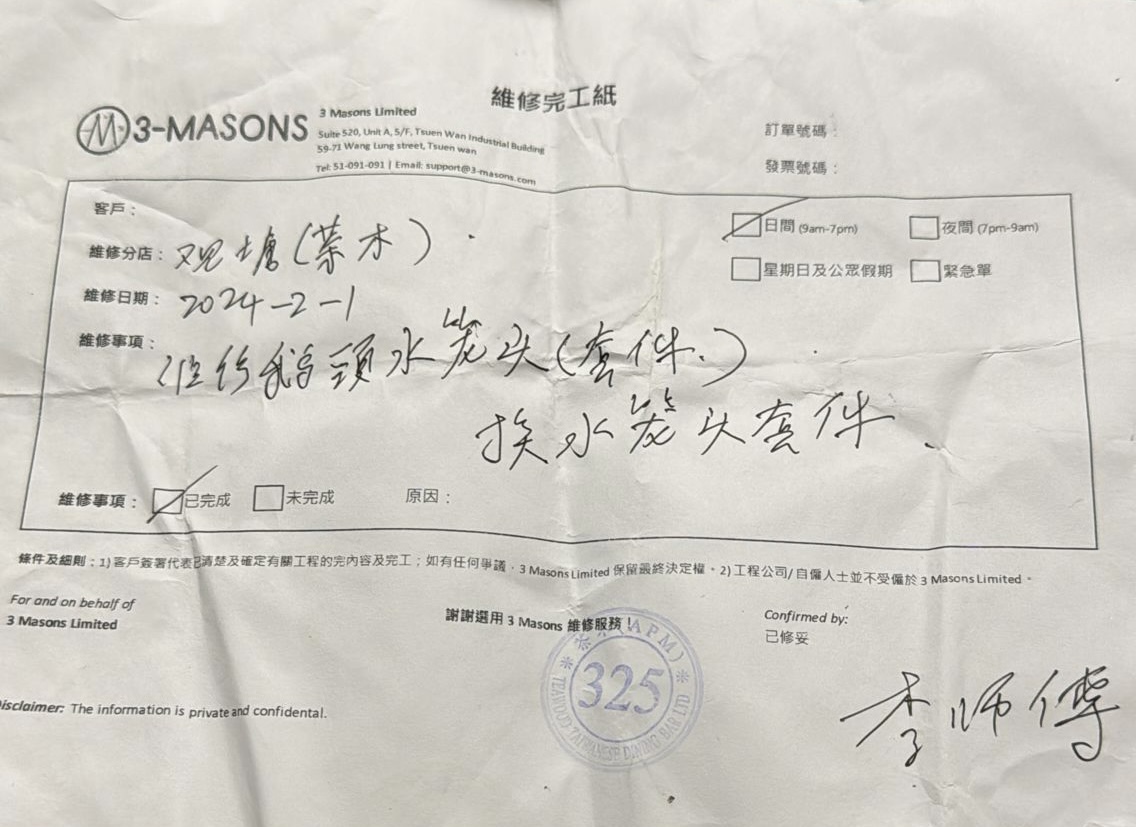 維修完工紙
3-MASONS
3 Masons Limited
Suite 520, Unit A, 5/F, Tsuen Wan Industrial Building
59-71 Wang Lung street, Tsuen wan
Tel: 51-091-091 | Email: support@3-masons.com
訂單號碼：
發票號碼：
客戶：
維修分店：观塘(茶木)
維修日期：2024-2-1
維修事項：维修鹅頭水笼头(套件.)
换水笼头套件.
日間 (9am-7pm)
夜間 (7pm-9am)
星期日及公眾假期
緊急單
維修事項： 已完成 未完成 原因：
條件及細則：1) 客戶簽署代表已清楚及確定有關工程的完內容及完工；如有任何爭議，3 Masons Limited 保留最終決定權。2) 工程公司/自僱人士並不受僱於 3 Masons Limited。
For and on behalf of
3 Masons Limited
謝謝選用 3 Masons 維修服務！
Confirmed by:
已修妥
茶木(APM)
325
TEAWOOD TAIWANESE DINING BAR LTD
李师傅
Disclaimer: The information is private and confidental.